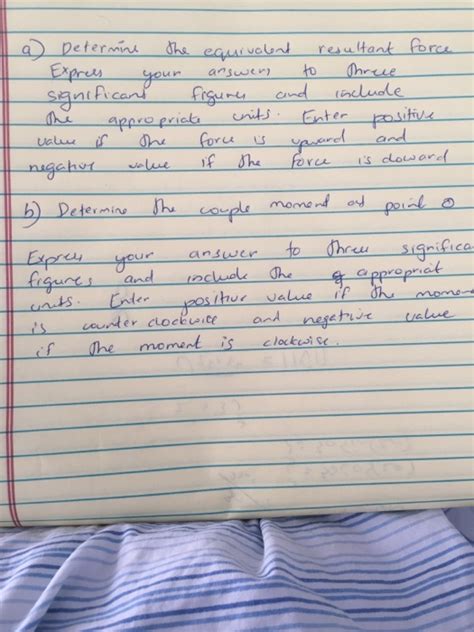 a) Determine the equivalent resultant force
Express your answers to three
significant figures and include
the appropriate units. Enter positive
value if the force is upward and
negative value if the force is doward
b) Determine the couple moment at point O
Express your answer to three significa
figures and include the appropriat
units. Enter positive value if the mome
is counter clockwise and negative value
if the moment is clockwise.